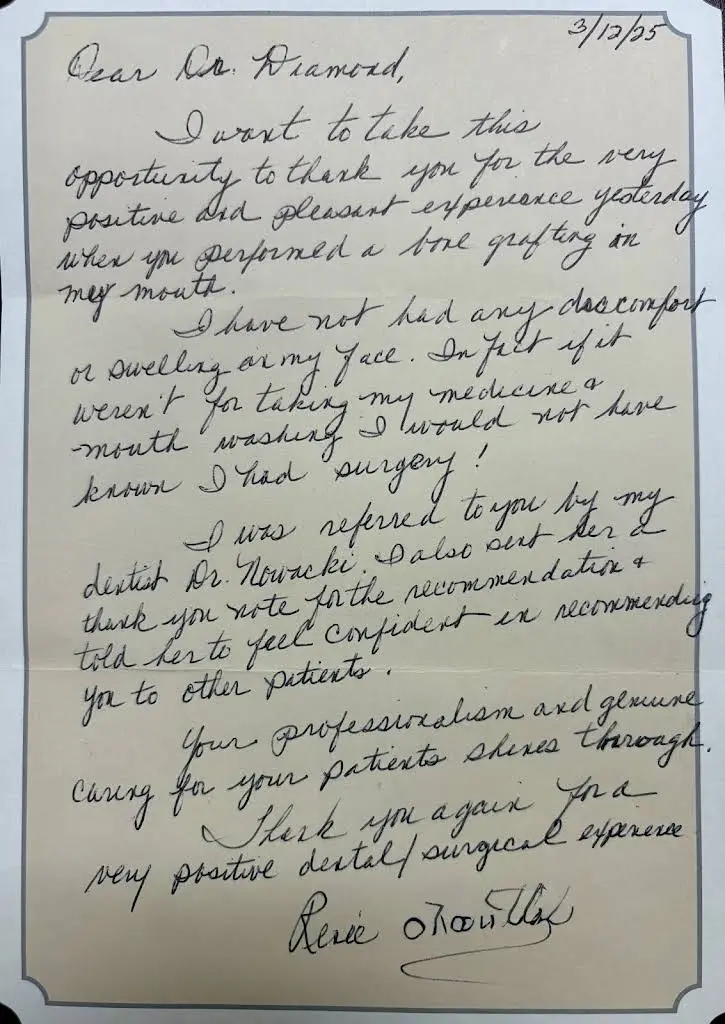 3/12/25
Dear Dr. Diamond,
I want to take this
opportunity to thank you for the very
positive and pleasant experience yesterday
when you performed a bone grafting in
my mouth.
I have not had any discomfort
or swelling on my face. In fact if it
weren't for taking my medicine &
mouth washing I would not have
known I had surgery!
I was referred to you by my
dentist Dr. Nowacki. I also sent her a
thank you note for the recommendation &
told her to feel confident in recommending
you to other patients.
Your professionalism and genuine
caring for your patients shines thorough.
Thank you again for a
very positive dental/surgical experience
Renée